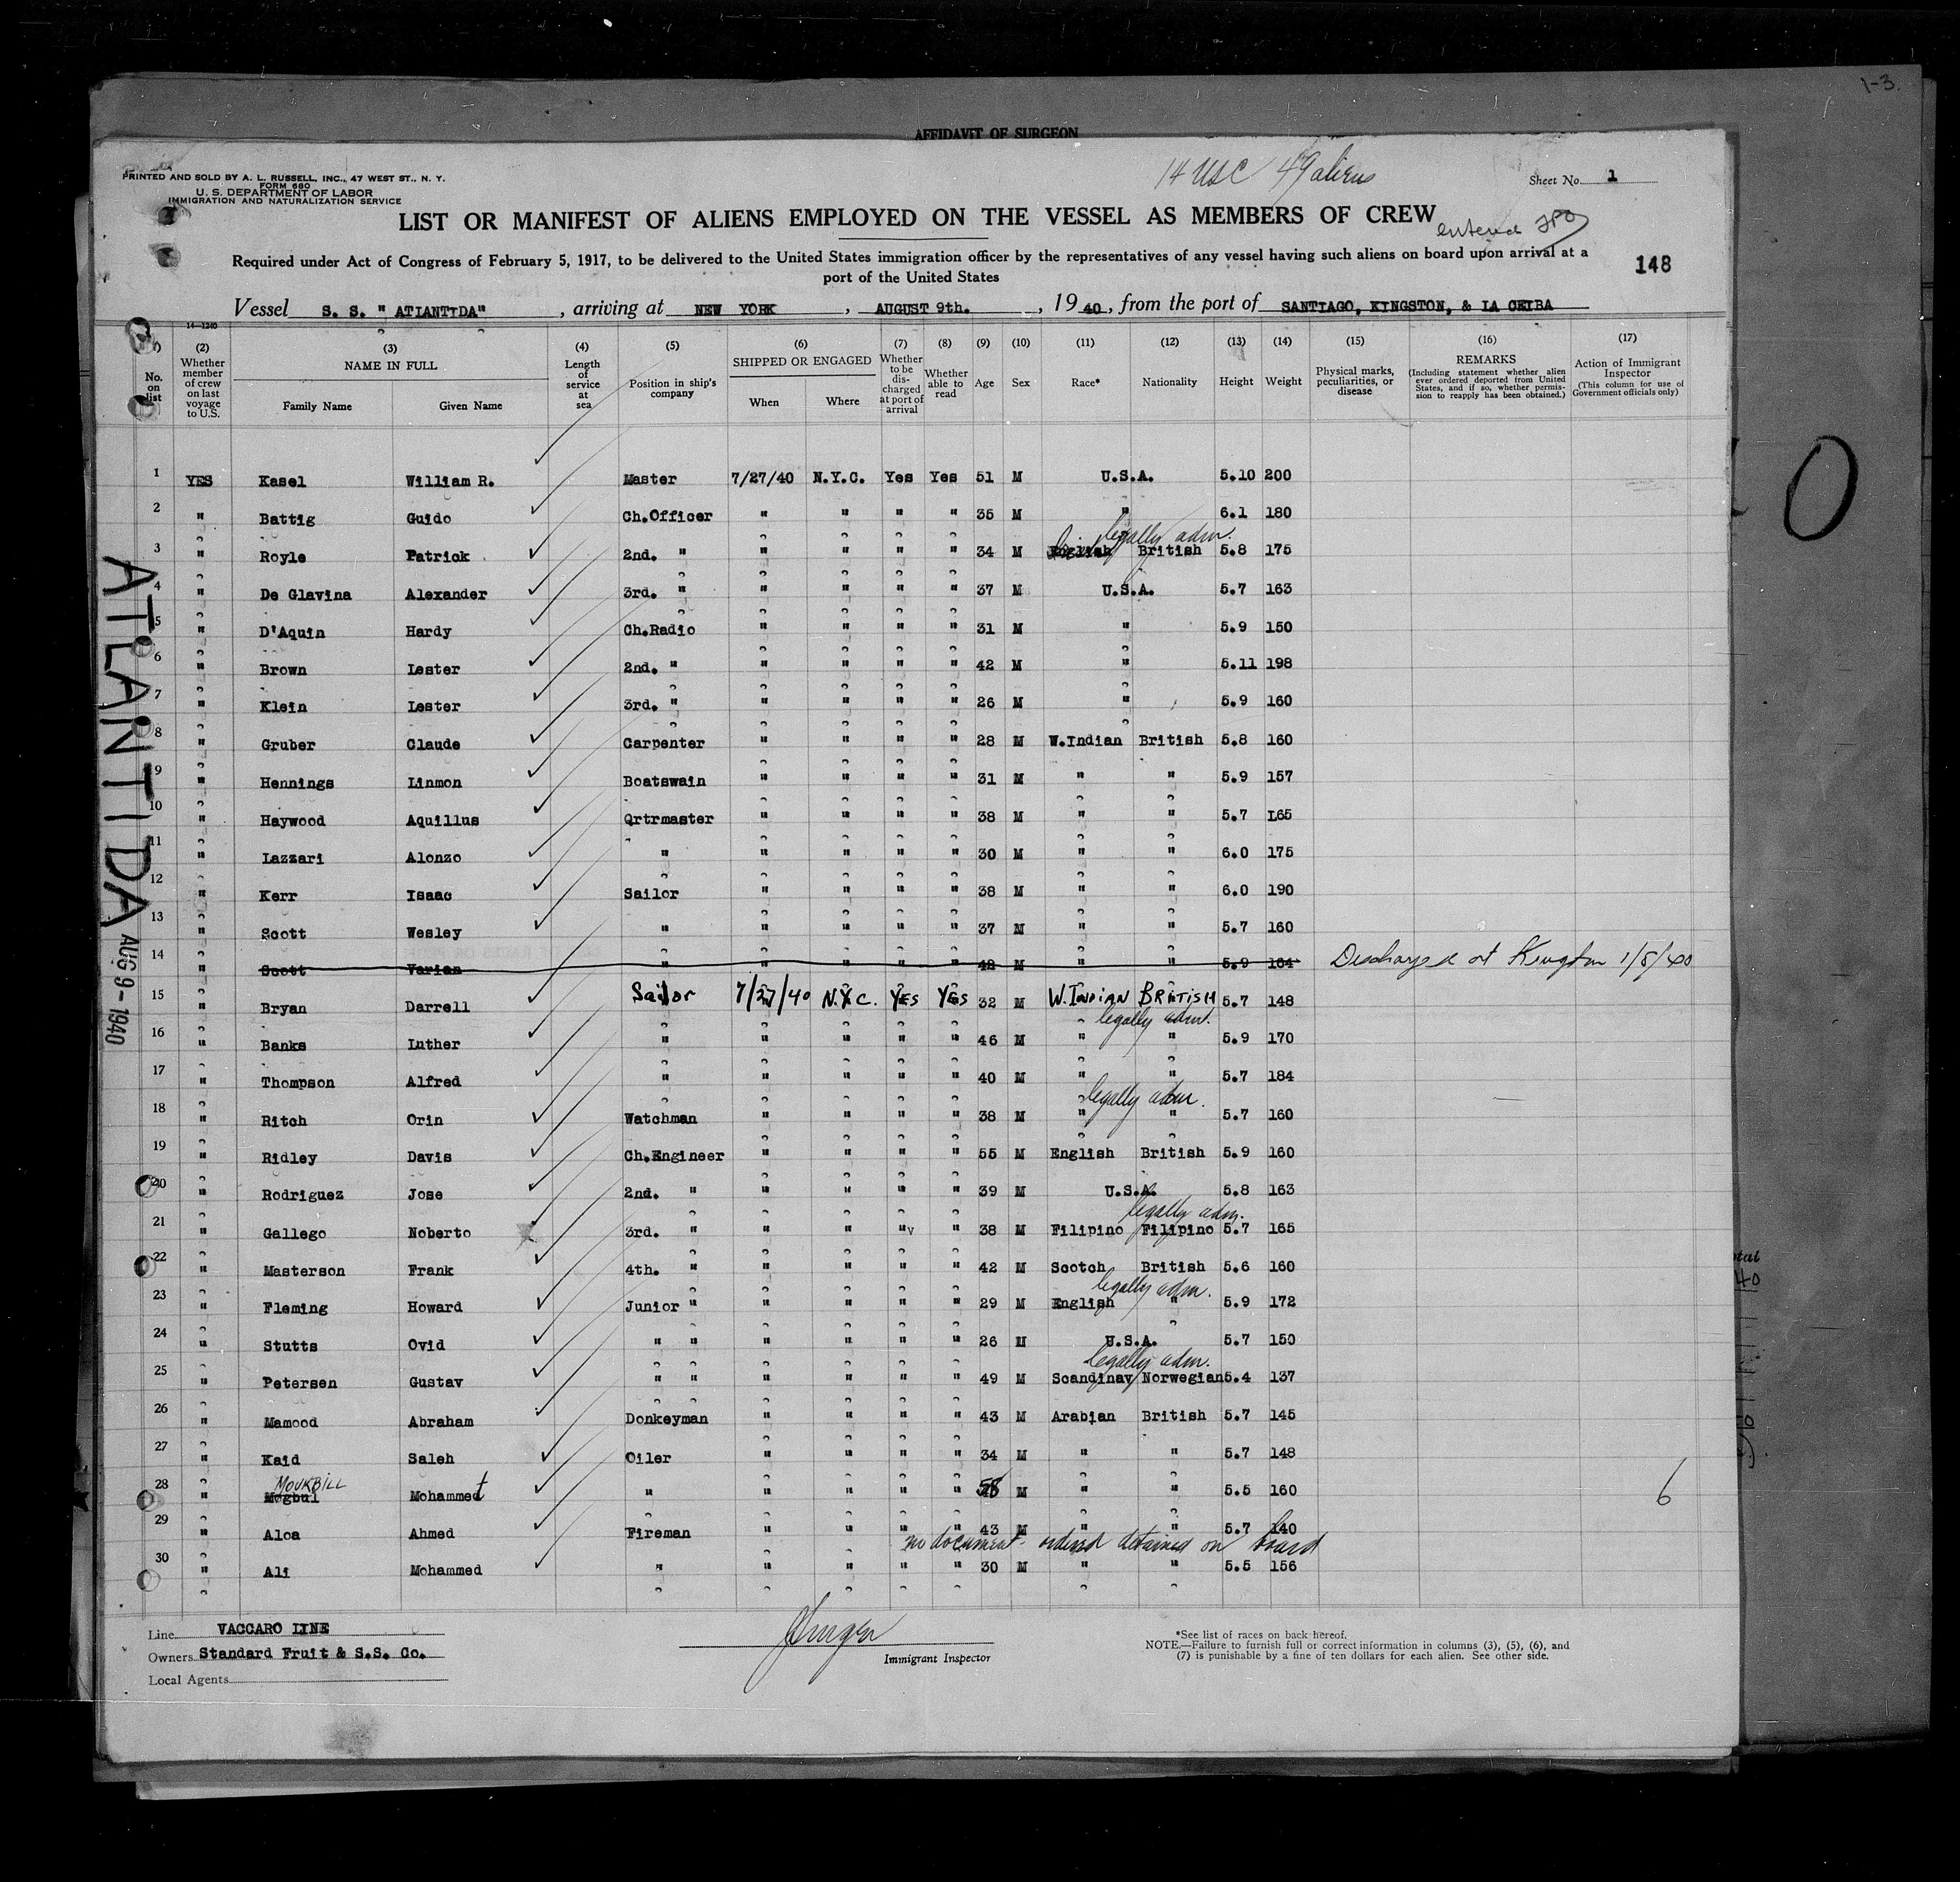 1-3.
AFFIDAVIT OF SURGEON
PRINTED AND SOLD BY A. L. RUSSELL, INC., 47 WEST ST., N. Y.
FORM 680
U. S. DEPARTMENT OF LABOR
IMMIGRATION AND NATURALIZATION SERVICE
14 USC 49 aliens
Sheet No. 1
LIST OR MANIFEST OF ALIENS EMPLOYED ON THE VESSEL AS MEMBERS OF CREW
entered
Required under Act of Congress of February 5, 1917, to be delivered to the United States immigration officer by the representatives of any vessel having such aliens on board upon arrival at a
port of the United States
148
Vessel S. S. " ATLANTIDA" , arriving at NEW YORK , AUGUST 9th. , 19 40, from the port of SANTIAGO, KINGSTON, & LA CEIBA
14-1240
(1) No. on list (2) Whether member of crew on last voyage to U.S. (3) NAME IN FULL Family Name Given Name (4) Length of service at sea (5) Position in ship's company (6) SHIPPED OR ENGAGED When Where (7) Whether to be discharged at port of arrival (8) Whether able to read (9) Age (10) Sex (11) Race* (12) Nationality (13) Height (14) Weight (15) Physical marks, peculiarities, or disease (16) REMARKS (Including statement whether alien ever ordered deported from United States, and if so, whether permission to reapply has been obtained.) (17) Action of Immigrant Inspector (This column for use of Government officials only)
1 YES Kasel William R. Master 7/27/40 N.Y.C. Yes Yes 51 M U.S.A. 5.10 200
2 " Battig Guido Ch.Officer " " " " 35 M " 6.1 180
legally adm.
3 " Royle Patrick 2nd. " " " " " 34 M English British 5.8 175
4 " De Glavina Alexander 3rd. " " " " " 37 M U.S.A. 5.7 163
5 " D'Aquin Hardy Ch.Radio " " " " 31 M " 5.9 150
6 " Brown Lester 2nd. " " " " " 42 M " 5.11 198
7 " Klein Lester 3rd. " " " " " 26 M " 5.9 160
8 " Gruber Claude Carpenter " " " " 28 M W.Indian British 5.8 160
9 " Hennings Linmon Boatswain " " " " 31 M " " 5.9 157
10 " Haywood Aquillus Qrtrmaster " " " " 38 M " " 5.7 165
11 " Lazzari Alonzo " " " " " 30 M " " 6.0 175
12 " Kerr Isaac Sailor " " " " 38 M " " 6.0 190
13 " Scott Wesley " " " " " 37 M " " 5.7 160
14 " Scott Varian " " " " " 42 M " " 5.9 164 Discharged at Kingston 1/8/40
15 " Bryan Darrell Sailor 7/27/40 N.Y.C. YES YES 32 M W. INDIAN BRITISH 5.7 148
legally adm.
16 " Banks Luther " " " " " 46 M " " 5.9 170
17 " Thompson Alfred " " " " " 40 M " " 5.7 184
legally adm.
18 " Ritch Orin Watchman " " " " 38 M " " 5.7 160
19 " Ridley Davis Ch.Engineer " " " " 55 M English British 5.9 160
20 " Rodriguez Jose 2nd. " " " " " 39 M U.S.A. 5.8 163
legally adm.
21 " Gallego Noberto 3rd. " " " " " 38 M Filipino Filipino 5.7 165
22 " Masterson Frank 4th. " " " " " 42 M Scotch British 5.6 160
legally adm.
23 " Fleming Howard Junior " " " " " 29 M English " 5.9 172
24 " Stutts Ovid " " " " " " 26 M U.S.A. 5.7 150
legally adm.
25 " Petersen Gustav " " " " " " 49 M Scandinav Norwegian 5.4 137
26 " Mamood Abraham Donkeyman " " " " 43 M Arabian British 5.7 145
27 " Kaid Saleh Oiler " " " " 34 M " " 5.7 148
MOUKBILL
28 " Mogbul Mohammet " " " " " M " " 5.5 160 6
29 " Aloa Ahmed Fireman " " " " 43 M " " 5.7 140
no document - ordered detained on board
30 " Ali Mohammed " " " " " 30 M " " 5.5 156
ATLANTIDA
AUG 9 - 1940
Line VACCARO LINE
Owners Standard Fruit & S.S. Co.
Local Agents
Immigrant Inspector
*See list of races on back hereof.
NOTE.—Failure to furnish full or correct information in columns (3), (5), (6), and
(7) is punishable by a fine of ten dollars for each alien. See other side.
0